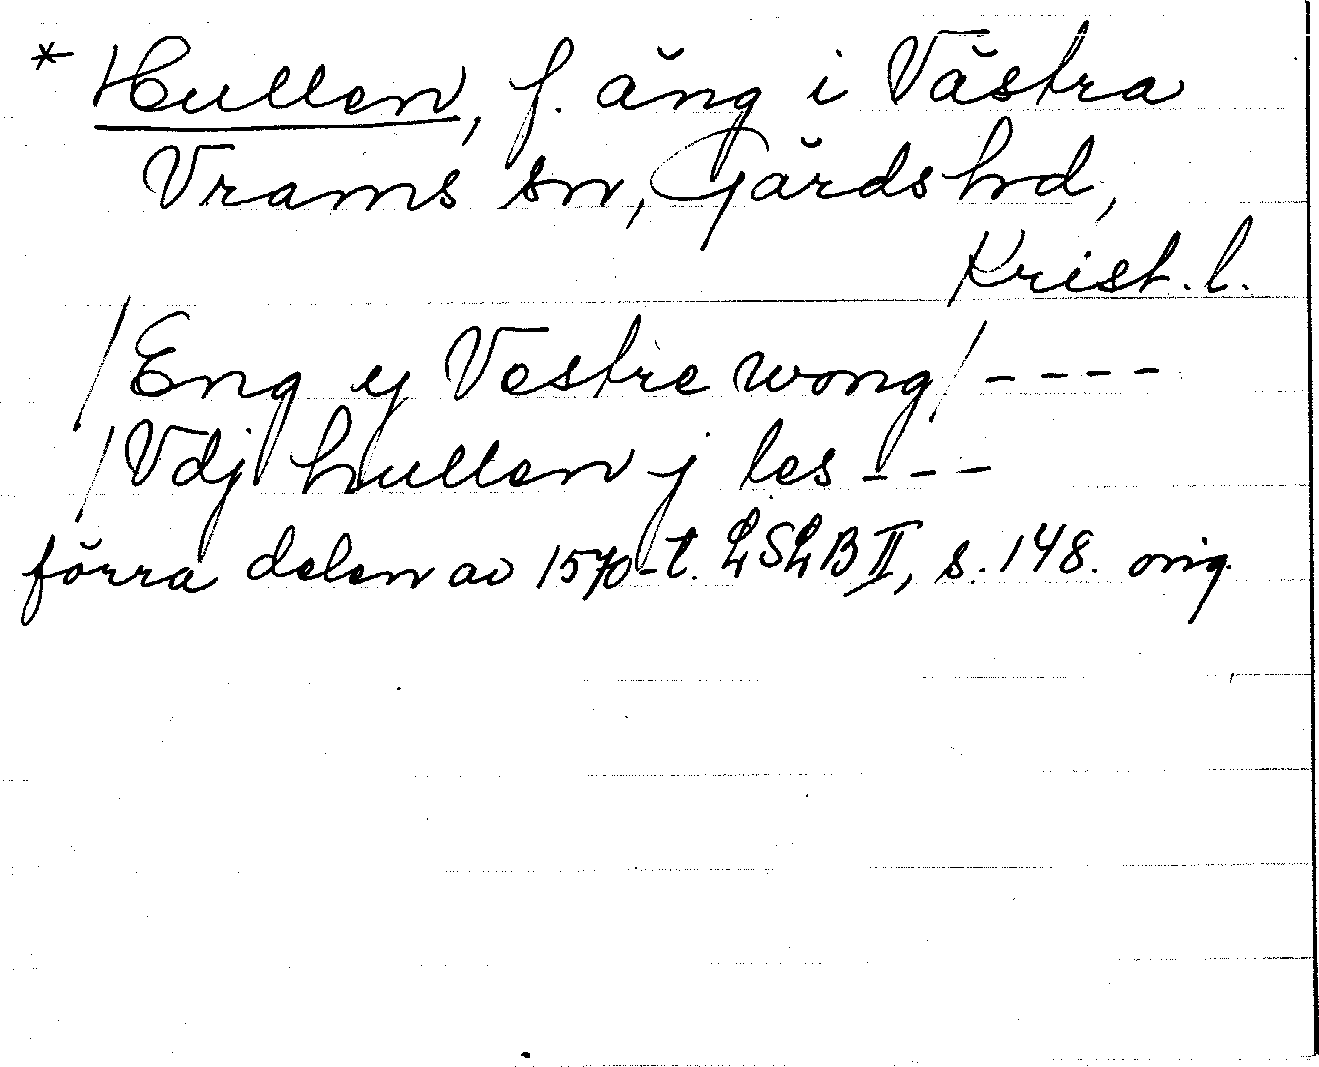 * Hullen, f. äng i Västra
Vrams sn, Gärds hd,
Krist. l.
/Eng y Vestre wong/ ----
/Vdj hullen j les ---
förra delen av 1570-t. LSLB II, s. 148. orig.